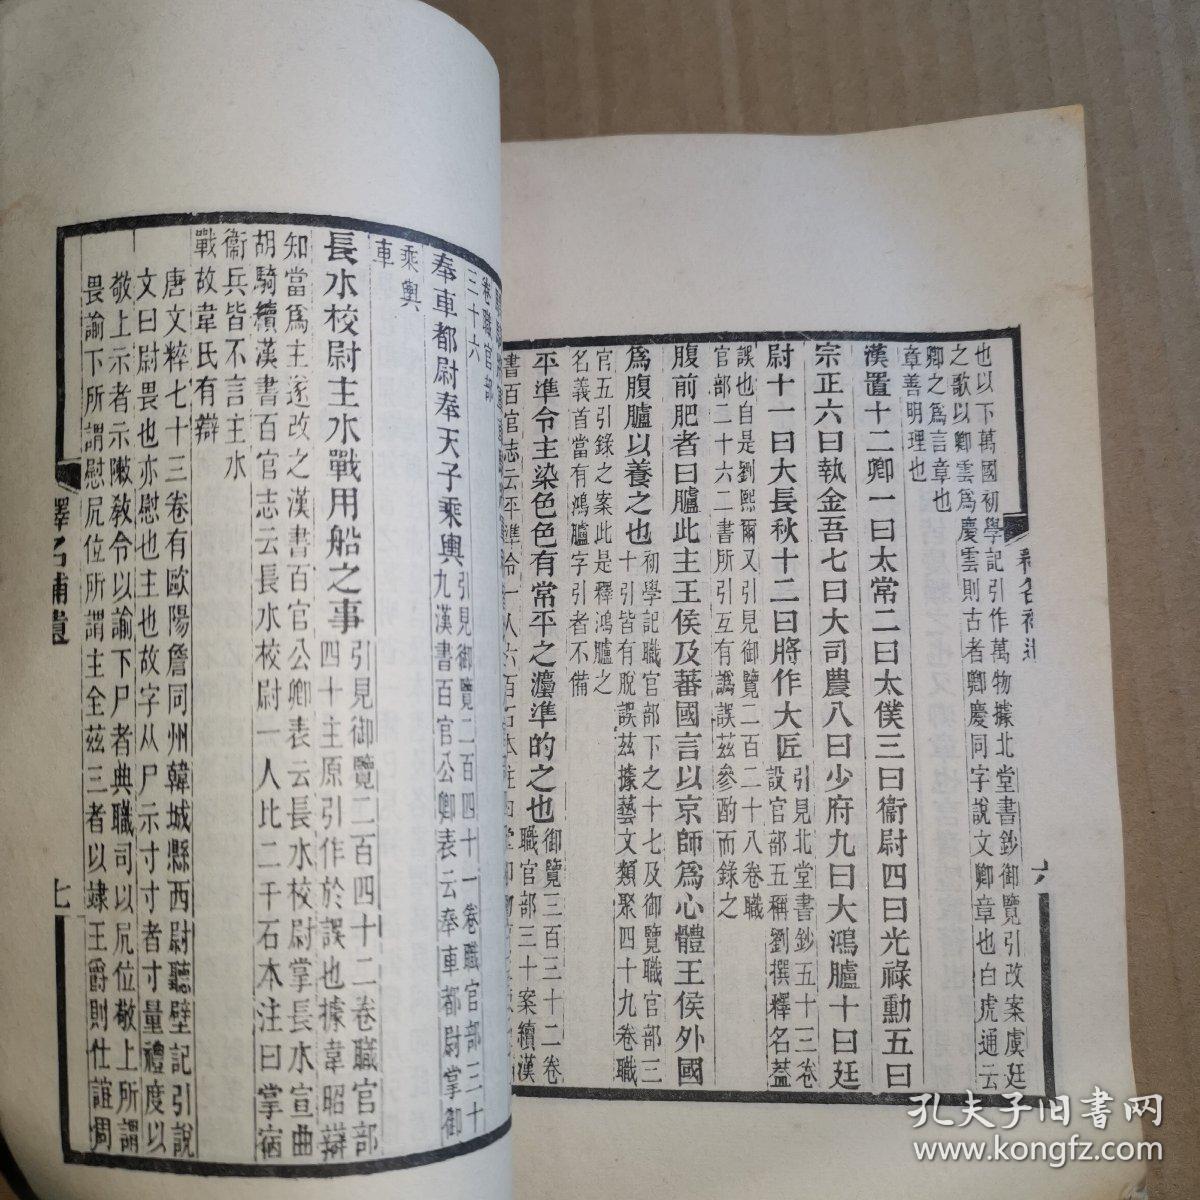 也以下萬國初學記引作萬物據北堂書鈔御覽引改案虞廷
之歌以卿雲爲慶雲則古者卿慶同字說文卿章也白虎通云
卿之爲言章也
章善明理也
漢置十二卿一曰太常二曰太僕三曰衞尉四曰光祿勳五曰
宗正六曰執金吾七曰大司農八曰少府九曰大鴻臚十曰廷
尉十一曰大長秋十二曰將作大匠
引見北堂書鈔五十三卷
設官部五稱劉撰釋名蓋
誤也自是劉熙爾又引見御覽二百二十八卷職
官部二十六二書所引互有譌誤茲參酌而錄之
腹前肥者曰臚此主王侯及蕃國言以京師爲心體王侯外國
爲腹臚以養之也
初學記職官部下之十七及御覽職官部三
十引皆有脫誤茲據藝文類聚四十九卷職
官五引錄之案此是釋鴻臚之
名義首當有鴻臚字引者不備
平準令主染色色有常平之灋準的之也
御覽三百三十二卷
職官部三十案續漢
書百官志云平準令一人六百石本注曰掌
卷職官部
三十六
奉車都尉奉天子乘輿
引見御覽二百四十一卷職官部三十
九漢書百官公卿表云奉車都尉掌御
乘輿
車
長水校尉主水戰用船之事
引見御覽二百四十二卷職官部
四十主原引作於誤也據韋昭辯
知當爲主遂改之漢書百官公卿表云長水校尉掌長水宣曲
胡騎續漢書百官志云長水校尉一人比二千石本注曰掌宿
衞兵皆不言主水
戰故韋氏有辯
唐文粹七十三卷有歐陽詹同州韓城縣西尉聽壁記引說
文曰尉畏也亦慰也主也故字从尸示寸寸者寸量禮度以
敬上示者示敶敎令以諭下尸者典職司以凥位敬上所謂
畏諭下所謂慰凥位所謂主全茲三者以竦王爵則仕誼倜
釋名補遺
六
釋名補遺
七
孔夫子旧书网
www.kongfz.com